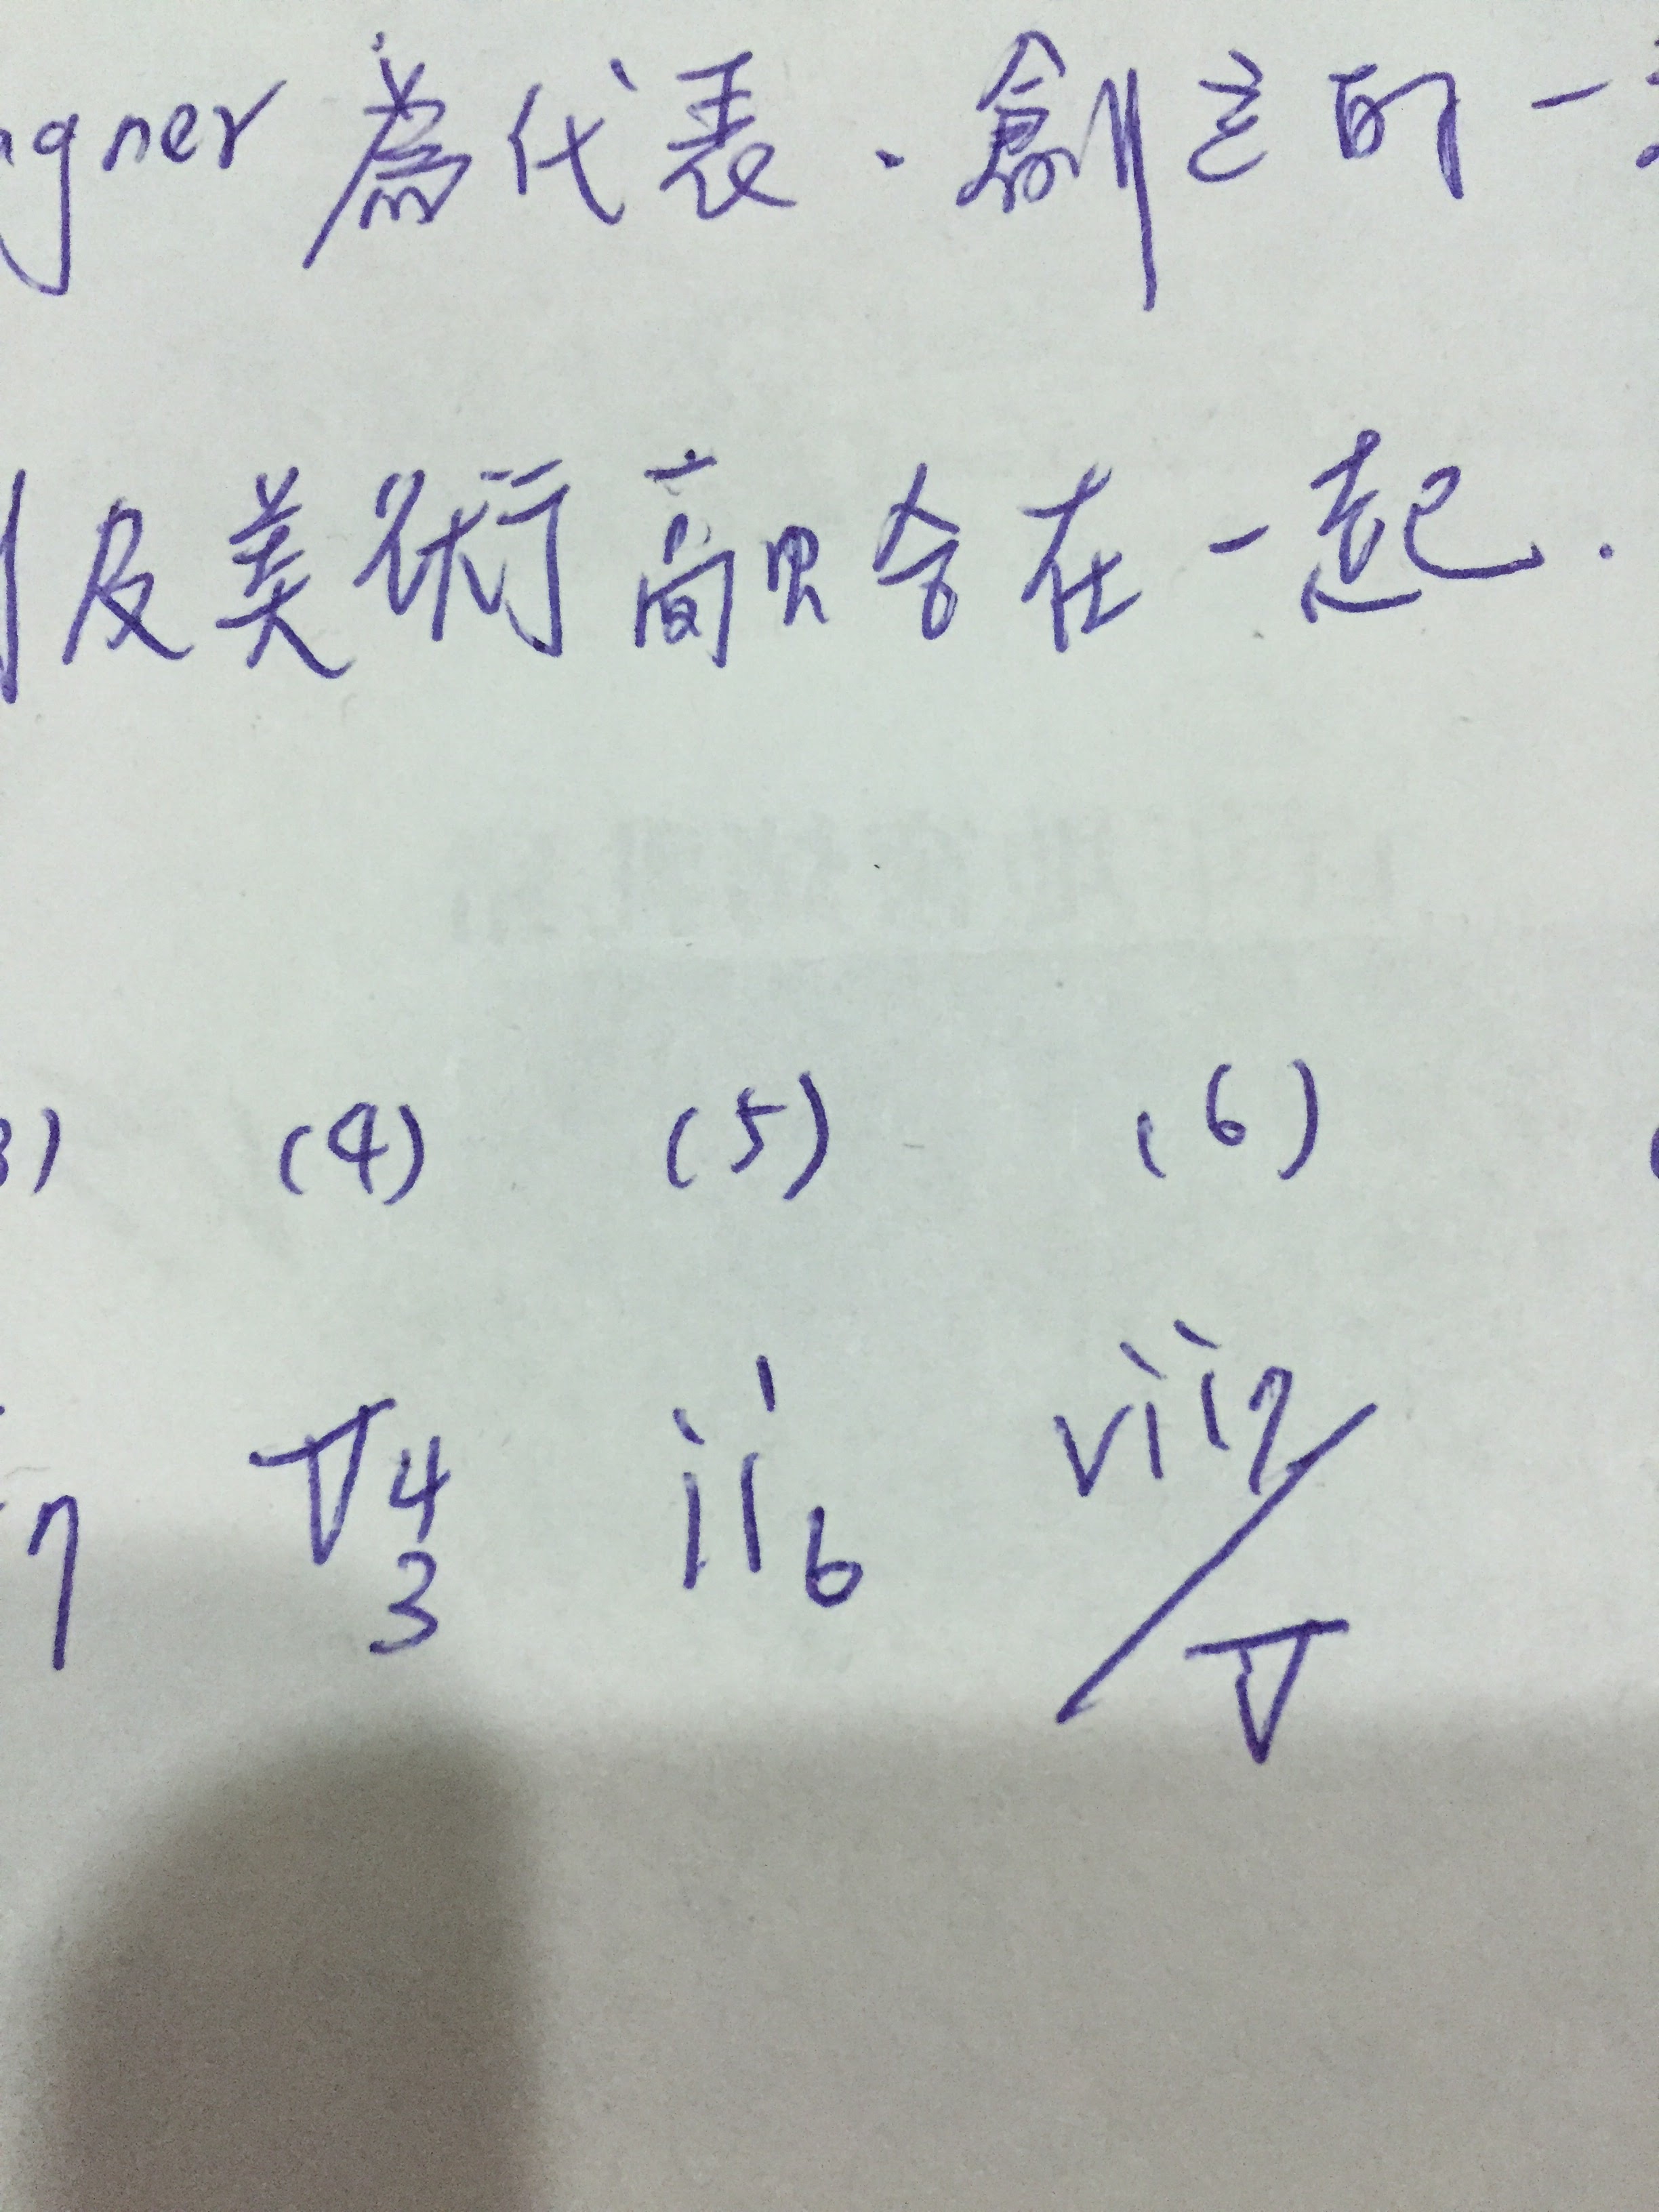 agner 為代表、創立的一
及美術融合在一起.
3) (4) (5) (6)
7 V4 ii6 vii7/V
3